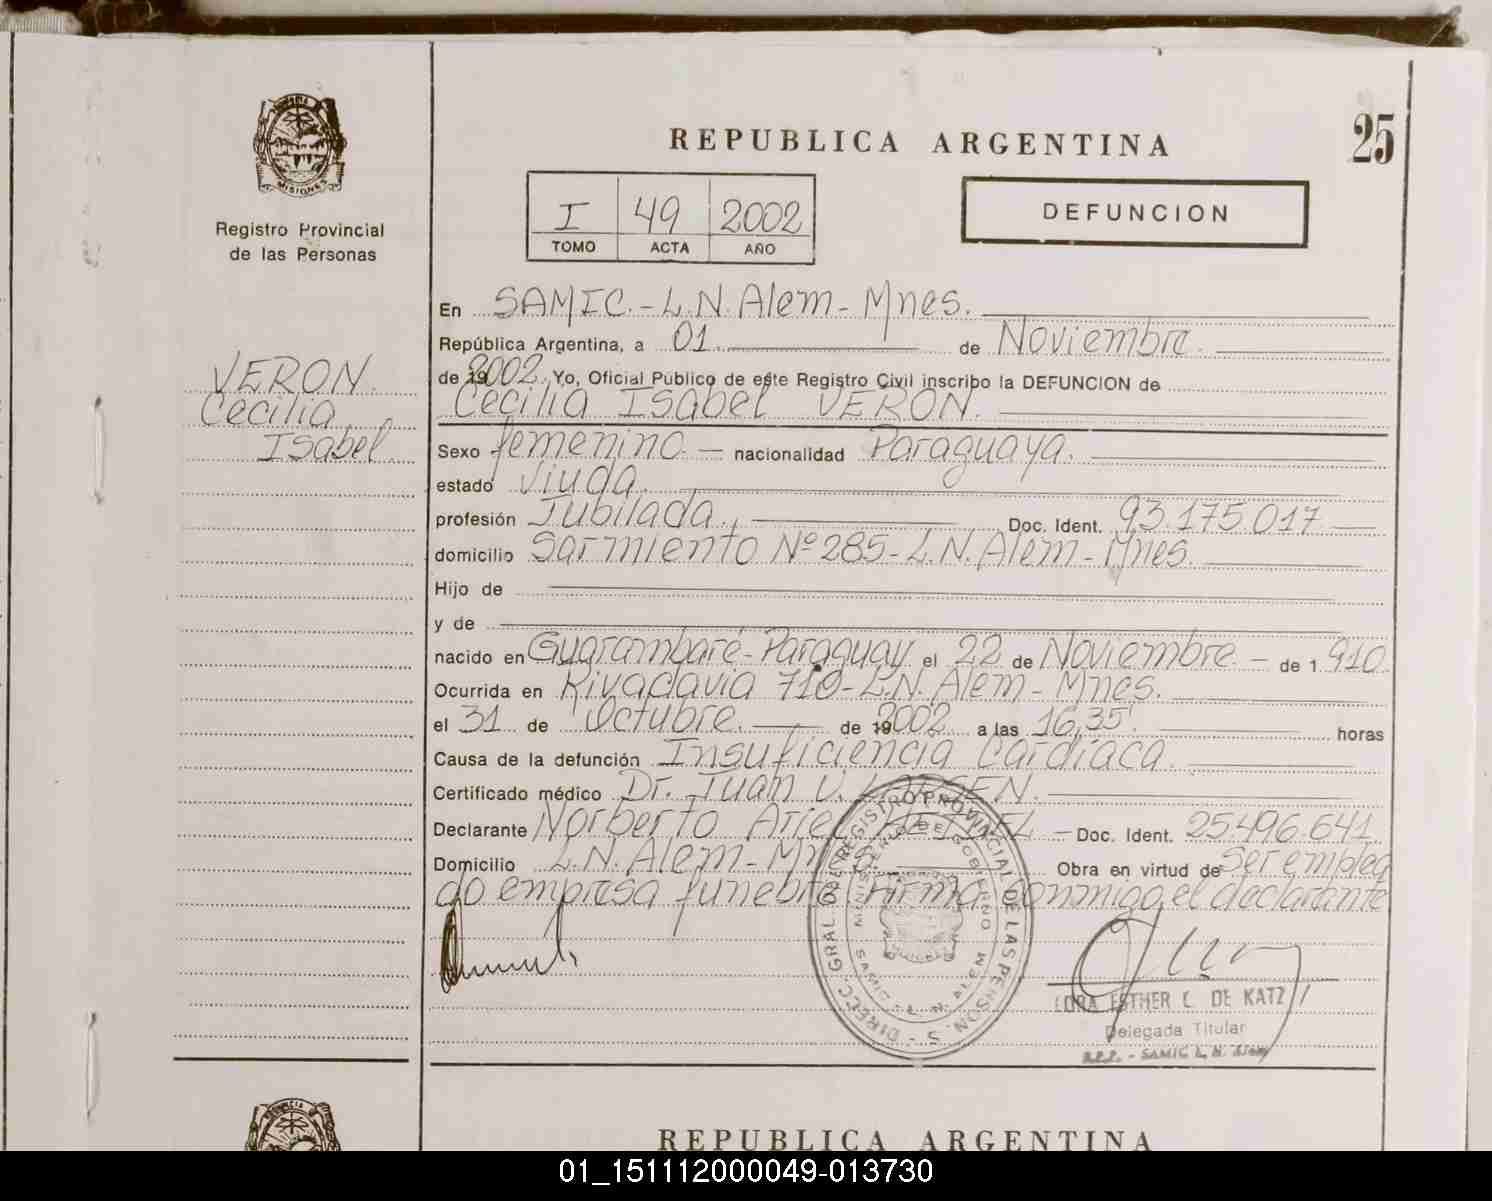 25
REPUBLICA ARGENTINA
I 49 2002
TOMO ACTA AÑO
DEFUNCION
MISIONES
Registro Provincial
de las Personas
VERON
Cecilia
Isabel
En SAMIC.-L.N.Alem-Mnes.
República Argentina, a 01. de Noviembre.
de 2002. Yo, Oficial Publico de este Registro Civil inscribo la DEFUNCION de
Cecilia Isabel VERON.
Sexo femenino.- nacionalidad Paraguaya.
estado viuda.
profesión Jubilada., Doc. Ident. 93.175.017
domicilio Sarmiento Nº 285-L.N.Alem-Mnes.
Hijo de
y de
nacido en Guarambaré-Paraguay el 22 de Noviembre - de 1.910.
Ocurrida en Rivadavia 710-L.N.Alem-Mnes.
el 31 de Octubre. de 2002 a las 16,35 horas
Causa de la defunción Insuficiencia Cardíaca.
Certificado médico Dr. Juan V.
Declarante Norberto Ariel - Doc. Ident. 25.496.641.
Domicilio L.N.Alem-Mnes. Obra en virtud de Ser emplea
do empresa funebre. Firma conmigo, el declarante
DIREC. GRAL. DEL REGISTRO PROVINCIAL DE LAS PERSONAS
MINISTERIO DE GOBIERNO
SAMIC - L. N. ALEM
ESTHER C. DE KATZ
Delegada Titular
SAMIC L. N. Alem
REPUBLICA ARGENTINA
01_151112000049-013730